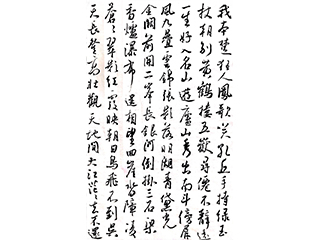 我本楚狂人鳳歌笑孔丘手持綠玉
杖朝別黃鶴樓五嶽尋僊不辭遠
一生好入名山遊廬山秀出南斗傍屏
風九疊雲錦張影落明湖青黛光
金闕前開二峯長銀河倒掛三石梁
香爐瀑布遙相望四崖沓嶂凌
蒼蒼翠影紅霞映朝日鳥飛不到吳
天長登高壯觀天地間大江茫茫去不還